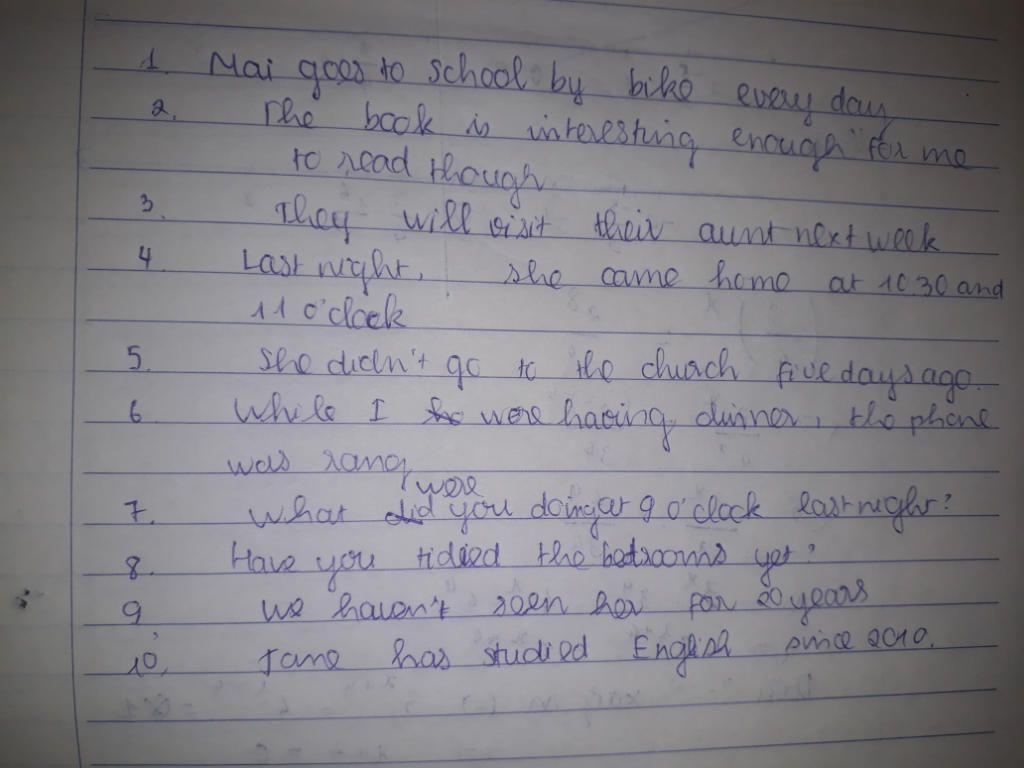 1. Mai goes to school by bike every day
2. The book is interesting enough for me
to read though
3. They will visit their aunt next week
4 Last night, she came home at 10.30 and
11 o'clock
5. She didn't go to the church five days ago.
6 While I were having dinner, the phone
was rang
were
7. What did you doing at 9 o'clock last night?
8. Have you tidied the bedrooms yet?
9 We haven't seen her for 20 years
10, Jane has studied English since 2010.